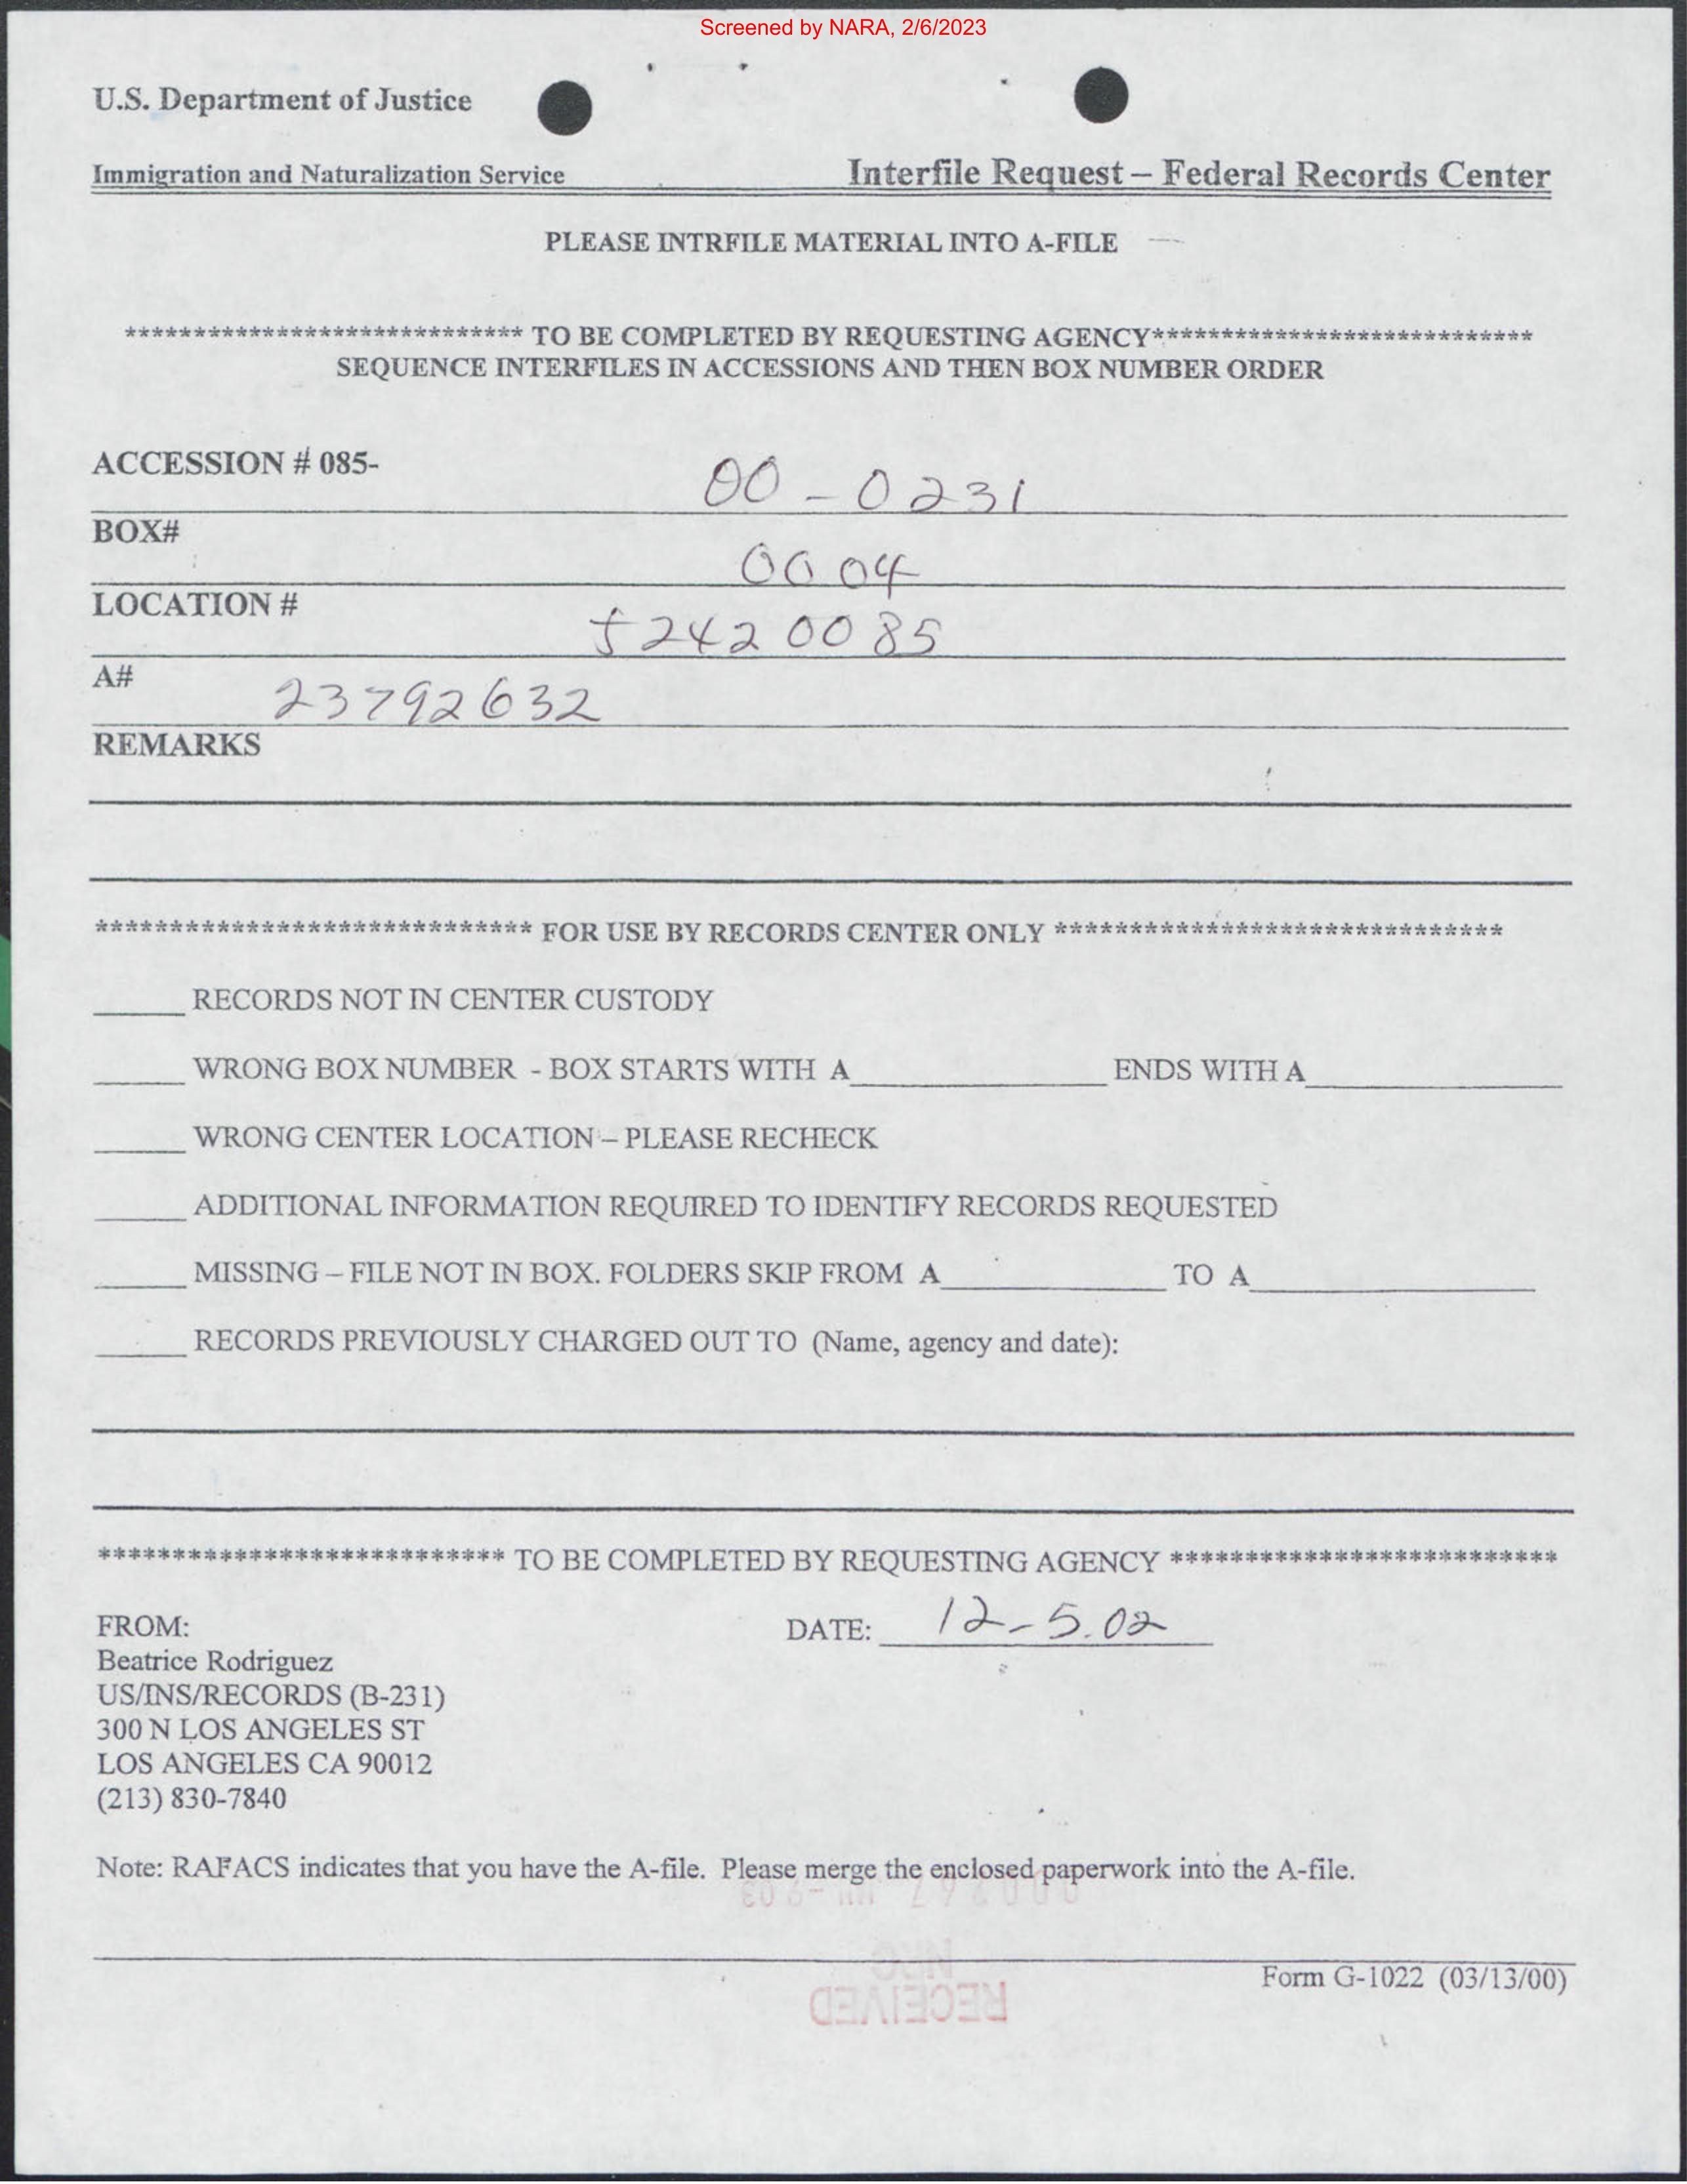 Screened by NARA, 2/6/2023
U.S. Department of Justice
Immigration and Naturalization Service Interfile Request – Federal Records Center
PLEASE INTRFILE MATERIAL INTO A-FILE
***************************** TO BE COMPLETED BY REQUESTING AGENCY****************************
SEQUENCE INTERFILES IN ACCESSIONS AND THEN BOX NUMBER ORDER
ACCESSION # 085- 00-0231
BOX# 0004
LOCATION # 52420085
A# 23792632
REMARKS
***************************** FOR USE BY RECORDS CENTER ONLY ******************************
______ RECORDS NOT IN CENTER CUSTODY
______ WRONG BOX NUMBER - BOX STARTS WITH A__________________ ENDS WITH A__________________
______ WRONG CENTER LOCATION – PLEASE RECHECK
______ ADDITIONAL INFORMATION REQUIRED TO IDENTIFY RECORDS REQUESTED
______ MISSING – FILE NOT IN BOX. FOLDERS SKIP FROM A________________ TO A____________________
______ RECORDS PREVIOUSLY CHARGED OUT TO (Name, agency and date):
*************************** TO BE COMPLETED BY REQUESTING AGENCY **************************
FROM: DATE: 12-5.02
Beatrice Rodriguez
US/INS/RECORDS (B-231)
300 N LOS ANGELES ST
LOS ANGELES CA 90012
(213) 830-7840
Note: RAFACS indicates that you have the A-file. Please merge the enclosed paperwork into the A-file.
Form G-1022 (03/13/00)
RECEIVED